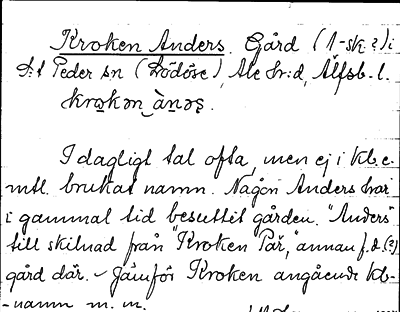 Kroken Anders. Gård (1-sk.?) i
S:t Peder sn (Lödöse), Ale hr:d, Älfsb. l.
I dagligt tal ofta, men ej i kb. e.
mtl. brukat namn. Någon Anders har
i gammal tid besuttit gården. "Anders"
till skilnad från "Kroken Pär," annan f.d. (?)
gård där. – Jämför Kroken angående kb-
-namn m. m.